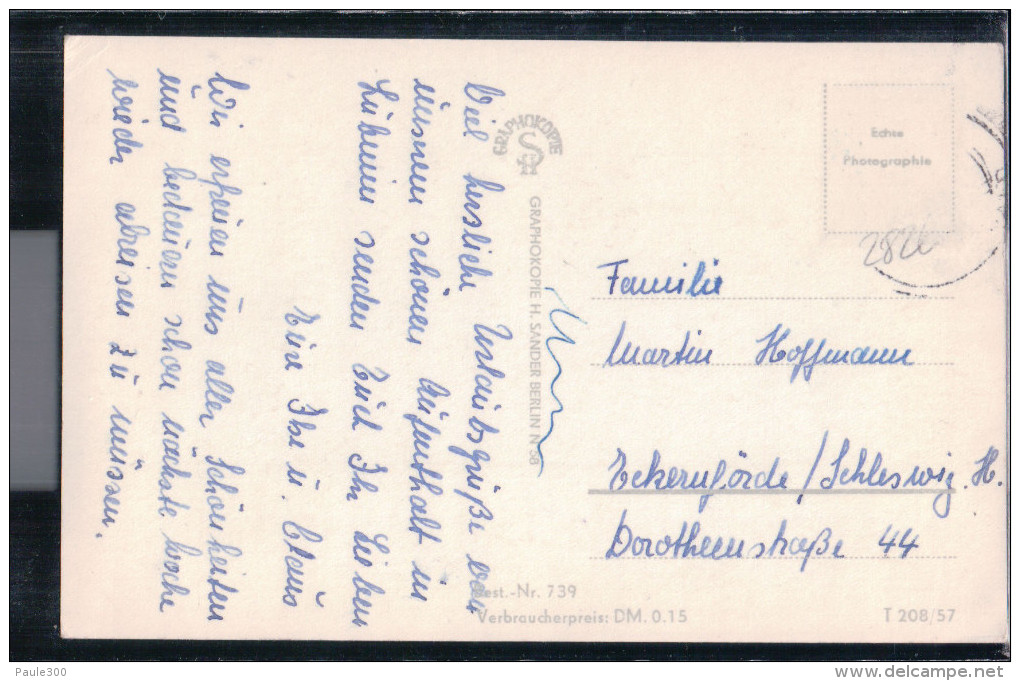 Viel herzliche Urlaubsgrüße von
unserem schönen Aufenthalt in
Lubmin senden Euch Ihr Lieben
Eure Ilse u. Claus
Wir erfreuen uns aller Schönheiten
und bedauern schon nächste Woche
wieder abreisen zu müssen.
GRAPHOKOPIE
GRAPHOKOPIE H. SANDER BERLIN N 58
Echte
Photographie
2826
Familie
Martin Hoffmann
Eckernförde/Schleswig. H.
Dorotheenstraße 44
Best.-Nr. 739
Verbraucherpreis: DM. 0.15
T 208/57
Paule300
www.delcampe.net